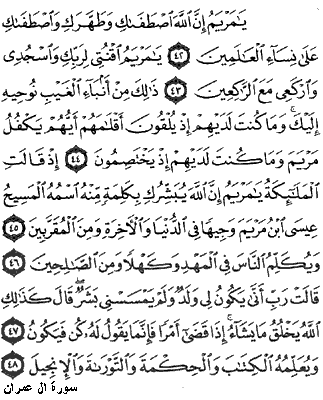 يَـٰمَرْيَمُ إِنَّ ٱللَّهَ ٱصْطَفَىٰكِ وَطَهَّرَكِ وَٱصْطَفَىٰكِ
عَلَىٰ نِسَآءِ ٱلْعَـٰلَمِينَ ٤٢ يَـٰمَرْيَمُ ٱقْنُتِى لِرَبِّكِ وَٱسْجُدِى
وَٱرْكَعِى مَعَ ٱلرَّٰكِعِينَ ٤٣ ذَٰلِكَ مِنْ أَنۢبَآءِ ٱلْغَيْبِ نُوحِيهِ
إِلَيْكَ ۚ وَمَا كُنتَ لَدَيْهِمْ إِذْ يُلْقُونَ أَقْلَـٰمَهُمْ أَيُّهُمْ يَكْفُلُ
مَرْيَمَ وَمَا كُنتَ لَدَيْهِمْ إِذْ يَخْتَصِمُونَ ٤٤ إِذْ قَالَتِ
ٱلْمَلَـٰٓئِكَةُ يَـٰمَرْيَمُ إِنَّ ٱللَّهَ يُبَشِّرُكِ بِكَلِمَةٍ مِّنْهُ ٱسْمُهُ ٱلْمَسِيحُ
عِيسَى ٱبْنُ مَرْيَمَ وَجِيهًا فِى ٱلدُّنْيَا وَٱلْـَٔاخِرَةِ وَمِنَ ٱلْمُقَرَّبِينَ ٤٥
وَيُكَلِّمُ ٱلنَّاسَ فِى ٱلْمَهْدِ وَكَهْلًا وَمِنَ ٱلصَّـٰلِحِينَ ٤٦
قَالَتْ رَبِّ أَنَّىٰ يَكُونُ لِى وَلَدٌ وَلَمْ يَمْسَسْنِى بَشَرٌ ۖ قَالَ كَذَٰلِكِ
ٱللَّهُ يَخْلُقُ مَا يَشَآءُ ۚ إِذَا قَضَىٰٓ أَمْرًا فَإِنَّمَا يَقُولُ لَهُۥ كُن فَيَكُونُ ٤٧
وَيُعَلِّمُهُ ٱلْكِتَـٰبَ وَٱلْحِكْمَةَ وَٱلتَّوْرَىٰةَ وَٱلْإِنجِيلَ ٤٨
سورة ال عمران